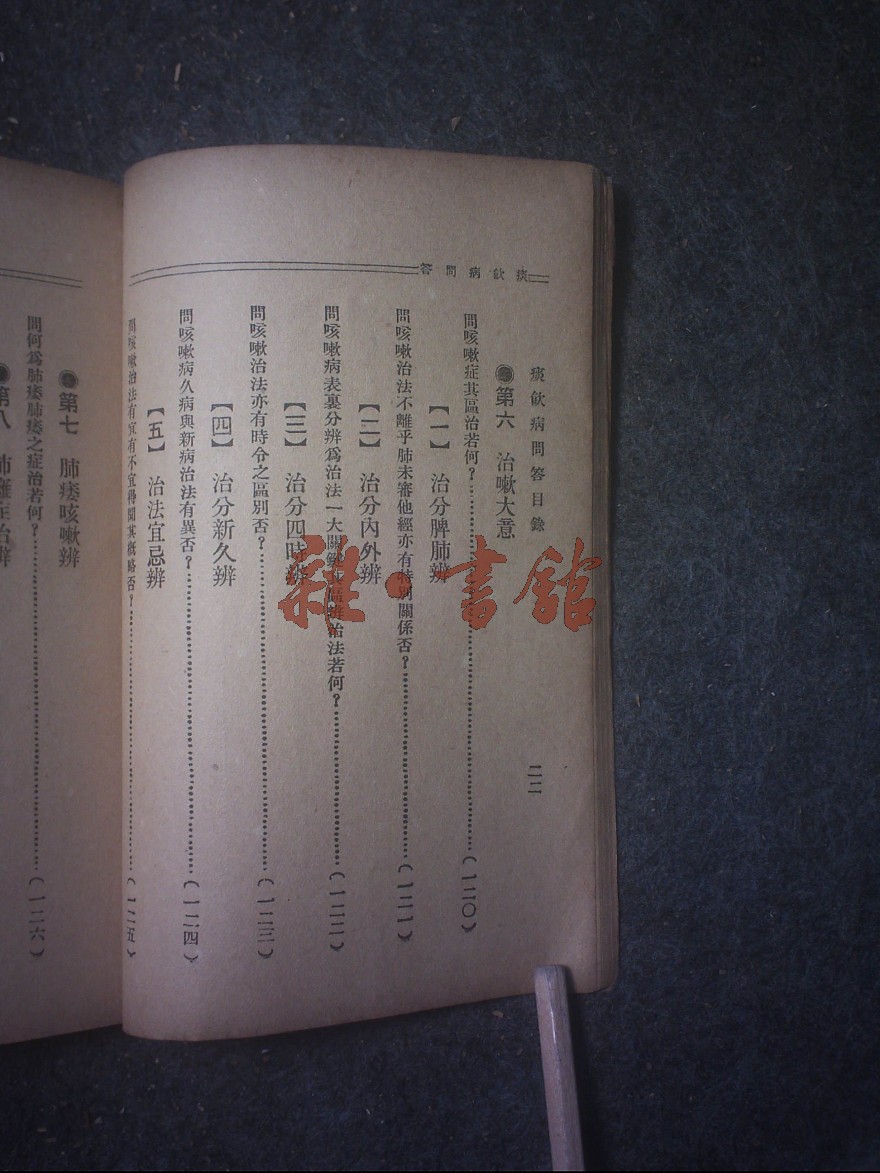 痰飮病問答
痰飮病問答目錄
二二
第六　治嗽大意
問咳嗽症其區治若何？……（一二〇）
【一】　治分脾肺辨
問咳嗽治法不離乎肺未審他經亦有特別關係否？……（一二一）
【二】　治分內外辨
問咳嗽病表裏分辨爲治法一大關鍵其區辨治法若何？……（一二二）
【三】　治分四時辨
問咳嗽治法亦有時令之區別否？……（一二三）
【四】　治分新久辨
問咳嗽病久病與新病治法有異否？……（一二四）
【五】　治法宜忌辨
問咳嗽治法有宜有不宜得聞其槪略否？……（一二五）
第七　肺痿咳嗽辨
問何爲肺痿肺痿之症治若何？……（一二六）
第八　肺癰症治辨
雜·書館